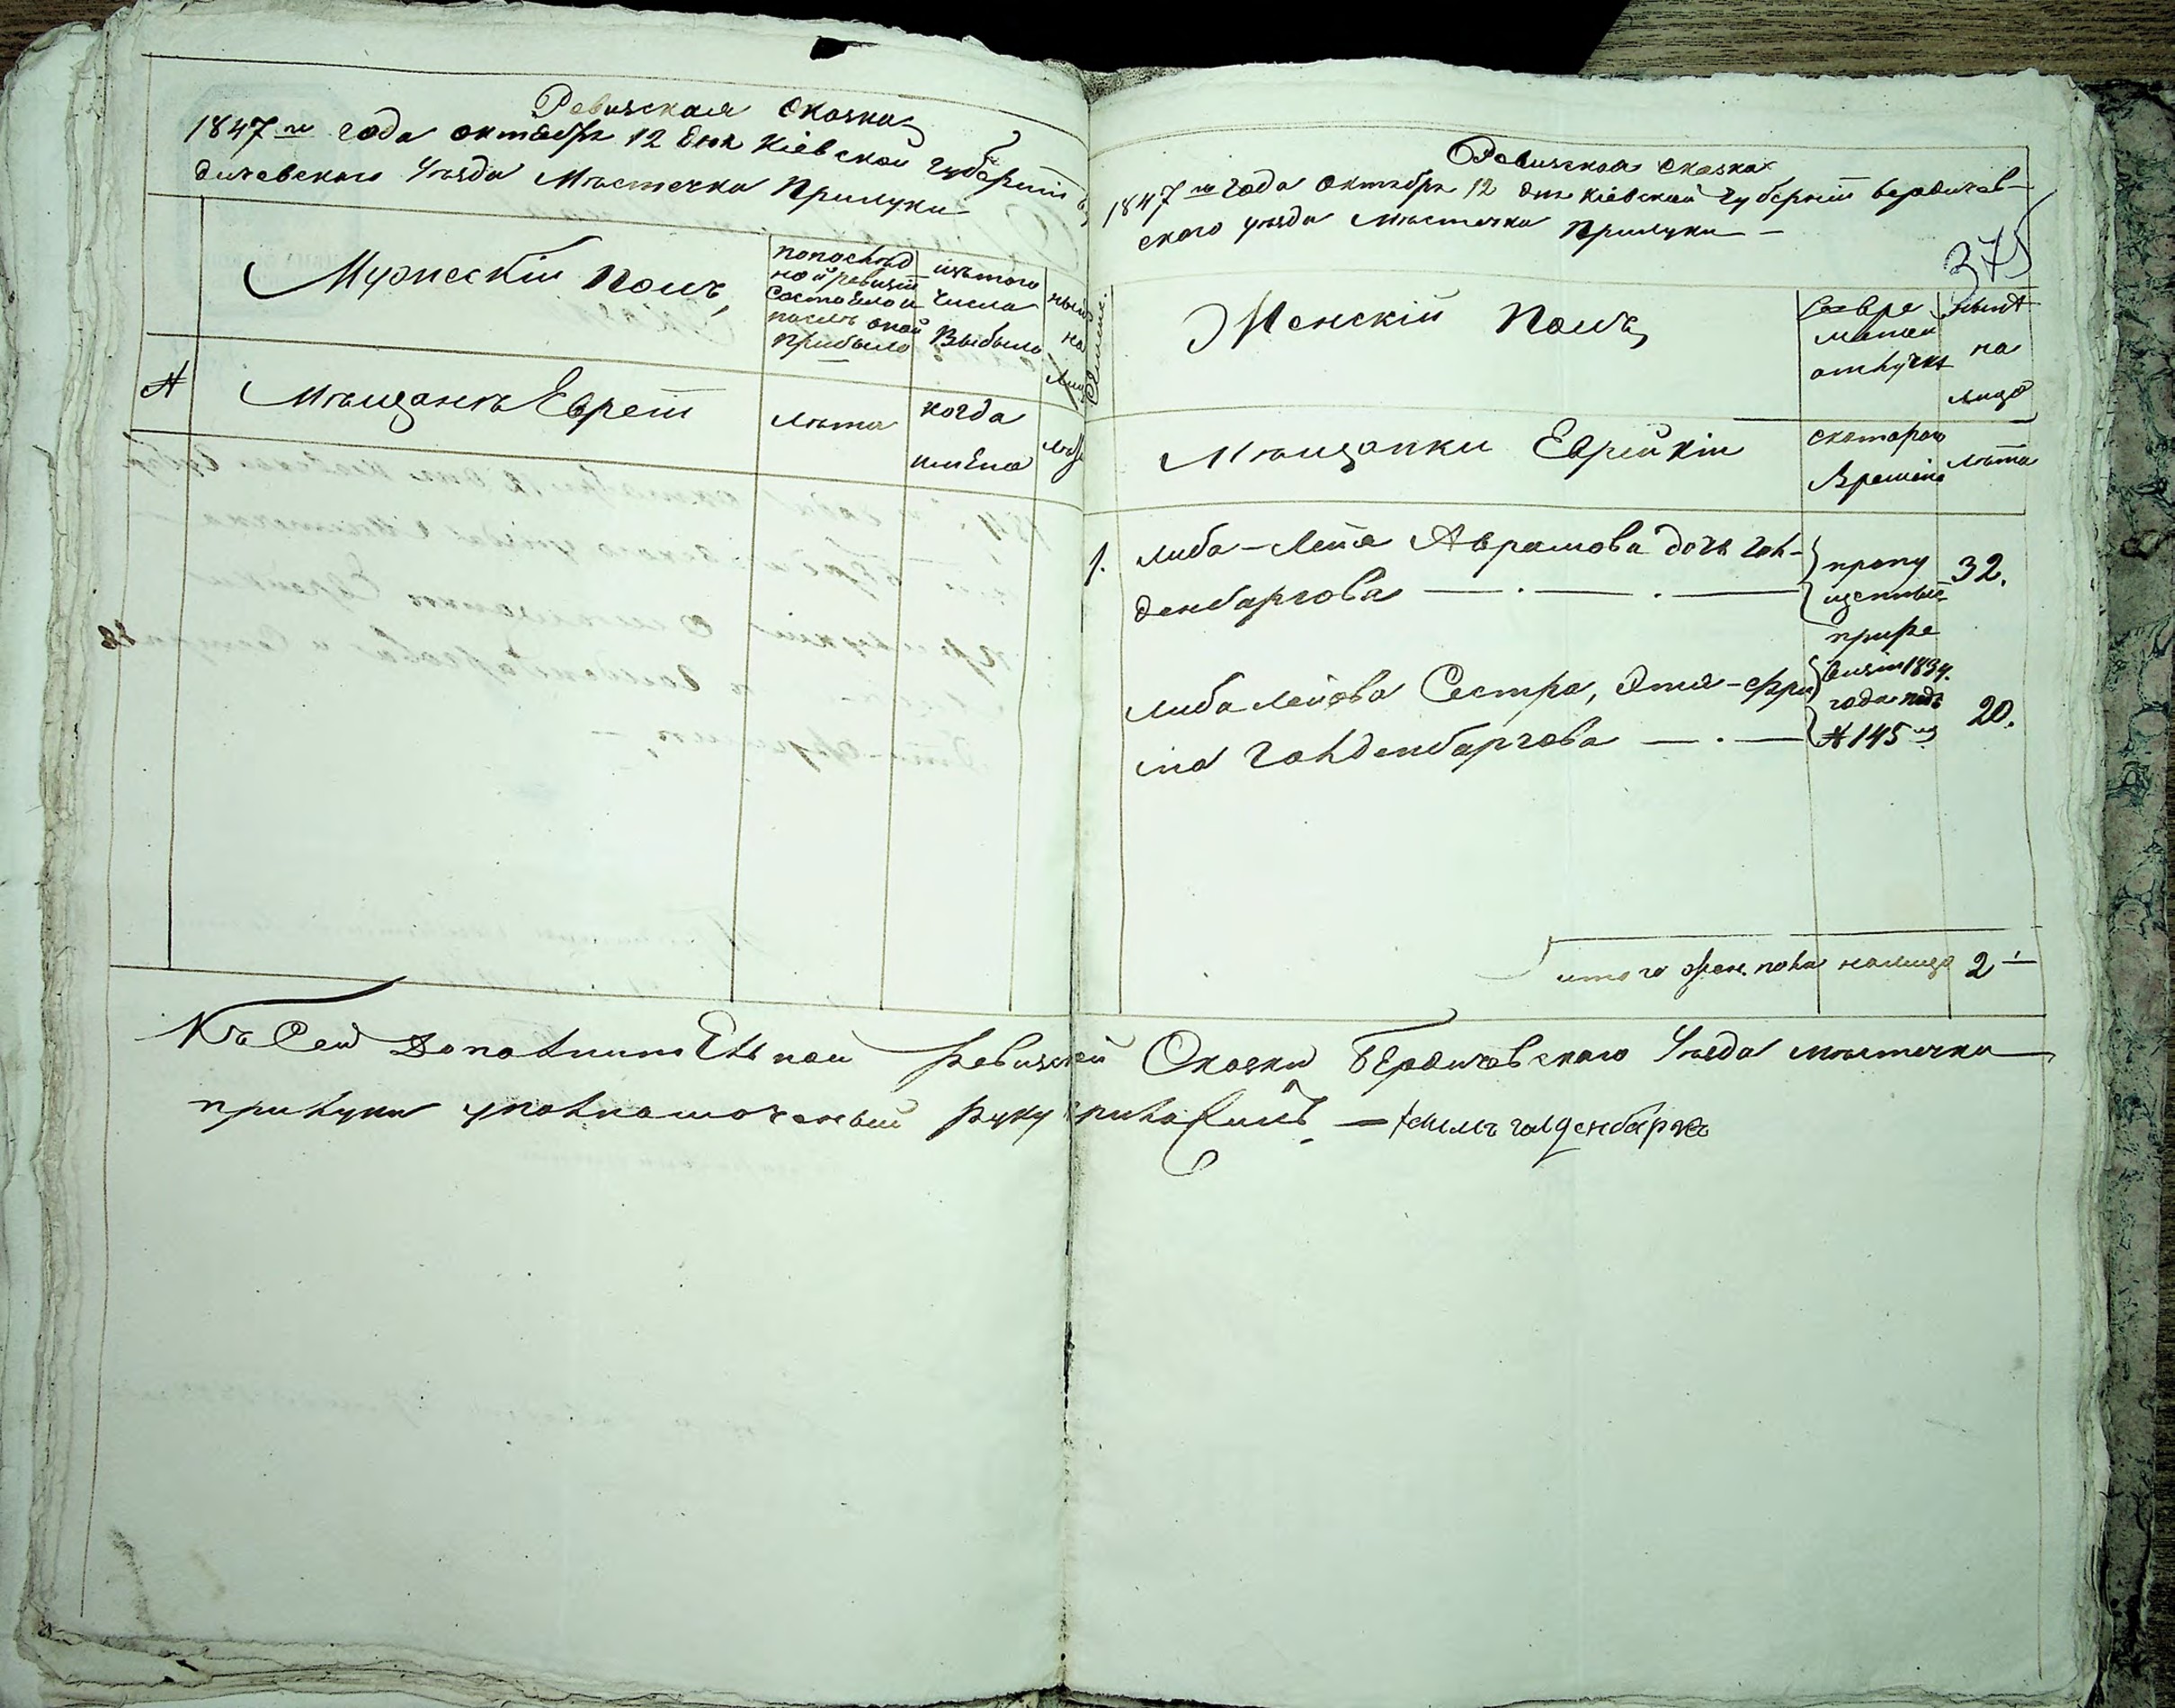 Ревизская сказка
1847го года октября 12 дня Кіевской губерніи Бер
дичевского Уѣзда Мѣстечка Прилуки
Мужескій полъ,
попослѣд
ной ревизіи
состояло и
послѣ оной
прибыло
изътого
числа
выбыло
нынѣ
на
лицо
№
Мѣщанъ Евреи
лѣта
когда
имѣно
лѣта
Ревизская сказка
1847го года октября 12 дня Кіевской губерніи Бердичев-
ского уѣзда Мѣстечка Прилуки —
375
Женскій полъ,
во вре
менной
отлучкѣ
нынѣ
на
лицо
Мѣщанки Еврейкіи
скотораго
времѣни
лѣта
1. Либа-Лейя Аврамова дочь Гол-
денбаргова — . — . —
пропу
щенные
прире
визіи 1834.
года подъ
№ 145м
32.
Либа Лейова Сестра, Этя-Фру
ма Голденбаргова — . —
20.
итого жен. пола налицо 2
Къ Сей Дополнитѣльной Ревизской Сказки Бердичевского Уѣзда мѣстечка
прилуки уполномоченый руку приложилъ — Хаимъ голденбаргъ